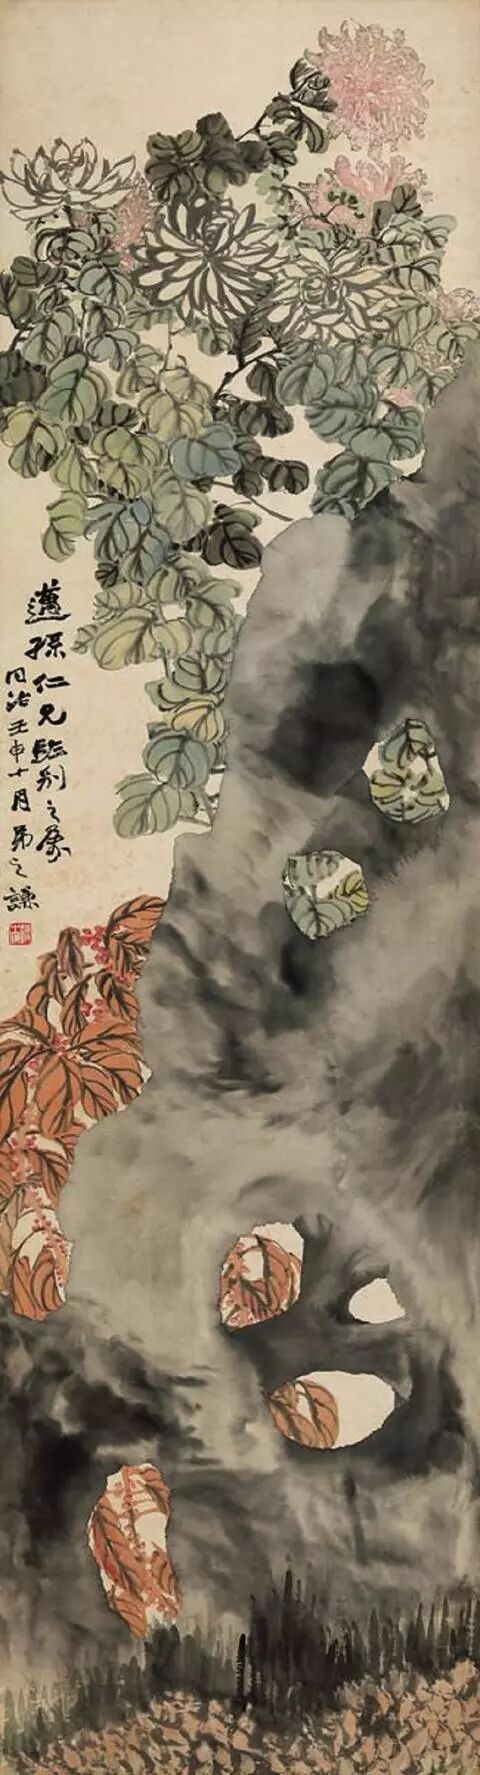 邁孫仁兄臨別之屬
同治壬申十月弟之謙